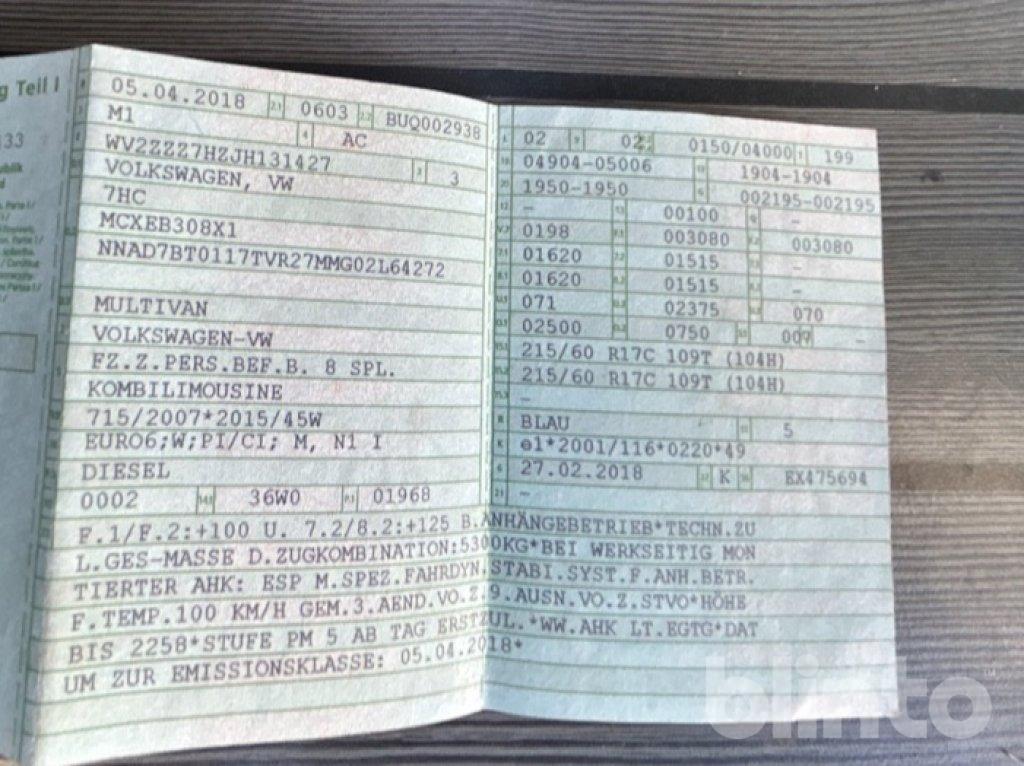 g Teil I
133
05.04.2018 2.1 0603 2.2 BUQ002938
M1 4 AC
WV2ZZZ7HZJH131427 3 3
VOLKSWAGEN, VW
7HC
MCXEB308X1
NNAD7BT0117TVR27MMG02L64272
MULTIVAN
VOLKSWAGEN-VW
FZ.Z.PERS.BEF.B. 8 SPL.
KOMBILIMOUSINE
715/2007*2015/45W
EURO6;W;PI/CI; M, N1 I
DIESEL
0002 14.1 36W0 P.1 01968
02 9 02 0150/04000 199
04904-05006 1904-1904
1950-1950 002195-002195
- 00100 -
0198 003080 003080
01620 01515 -
01620 01515 -
071 02375 070
02500 0750 007 -
215/60 R17C 109T (104H)
215/60 R17C 109T (104H)
-
BLAU 5
e1*2001/116*0220*49
27.02.2018 K EX475694
21 -
F.1/F.2:+100 U. 7.2/8.2:+125 B.ANHÄNGEBETRIEB*TECHN.ZU
L.GES-MASSE D.ZUGKOMBINATION:5300KG*BEI WERKSEITIG MON
TIERTER AHK: ESP M.SPEZ.FAHRDYN.STABI.SYST.F.ANH.BETR.
F.TEMP.100 KM/H GEM.3.AEND.VO.Z.9.AUSN.VO.Z.STVO*HÖHE
BIS 2258*STUFE PM 5 AB TAG ERSTZUL.*WW.AHK LT.EGTG*DAT
UM ZUR EMISSIONSKLASSE: 05.04.2018*
blinto